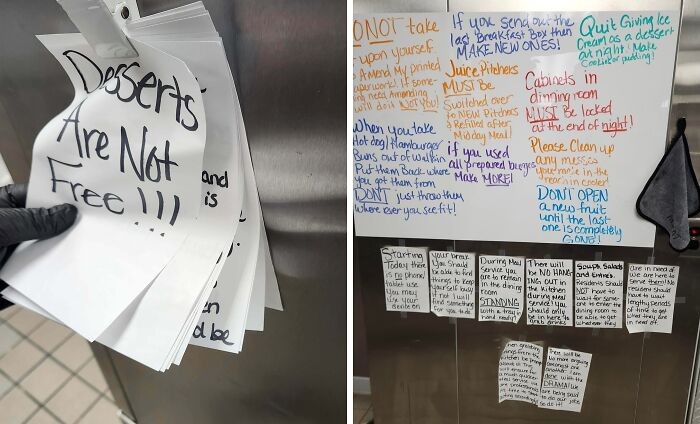 Desserts
Are Not
Free!!!
and
is
en
d be
NOT take
upon yourself
Amend my printed
If some-
need Amending
will do it NOT YOU!
When you take
Hot dog/Hamburger
Buns out of walkin
Put them Back where
you got them from
DONT just throw them
where ever you see fit!
If you send out the
last Breakfast Box then
MAKE NEW ONES!
Juice Pitchers
MUST Be
Switched over
to NEW Pitchers
& Refilled after
Midday Meal!
if you used
all prepared burgers
Make MORE!
Quit Giving Ice
Cream as a dessert
at night! Make
Cookie or pudding!
Cabinets in
dinning room
MUST Be locked
at the end of night!
Please Clean up
any messes
you make in the
DONT OPEN
a new fruit
until the last
one is completely
GONE!
Starting
Today there
is no phone/
tablet use
You may
use your
your break
You Should
be able to find
things to keep
yourself busy
if not I will
find something
for you to do
During Meal
Service you
are to remain
in the dining
room
STANDING
with a tray &
hand ready!
There will
be NO HANG-
ING OUT in
the Kitchen
during meal
service! you
should only
be in here to
grab drinks
Soups, Salads
and Entrees.
Residents Should
NOT have to
wait for some-
one to enter the
dining room to
be able to get
what they
are in need of
we are here to
serve them! No
resident should
have to wait
lengthy periods
of time to get
what they are
in need of.
There will be
No more arguing
amongst one
another. I am
done with the
DRAMA! We
are being paid
to do our jobs
so do it!